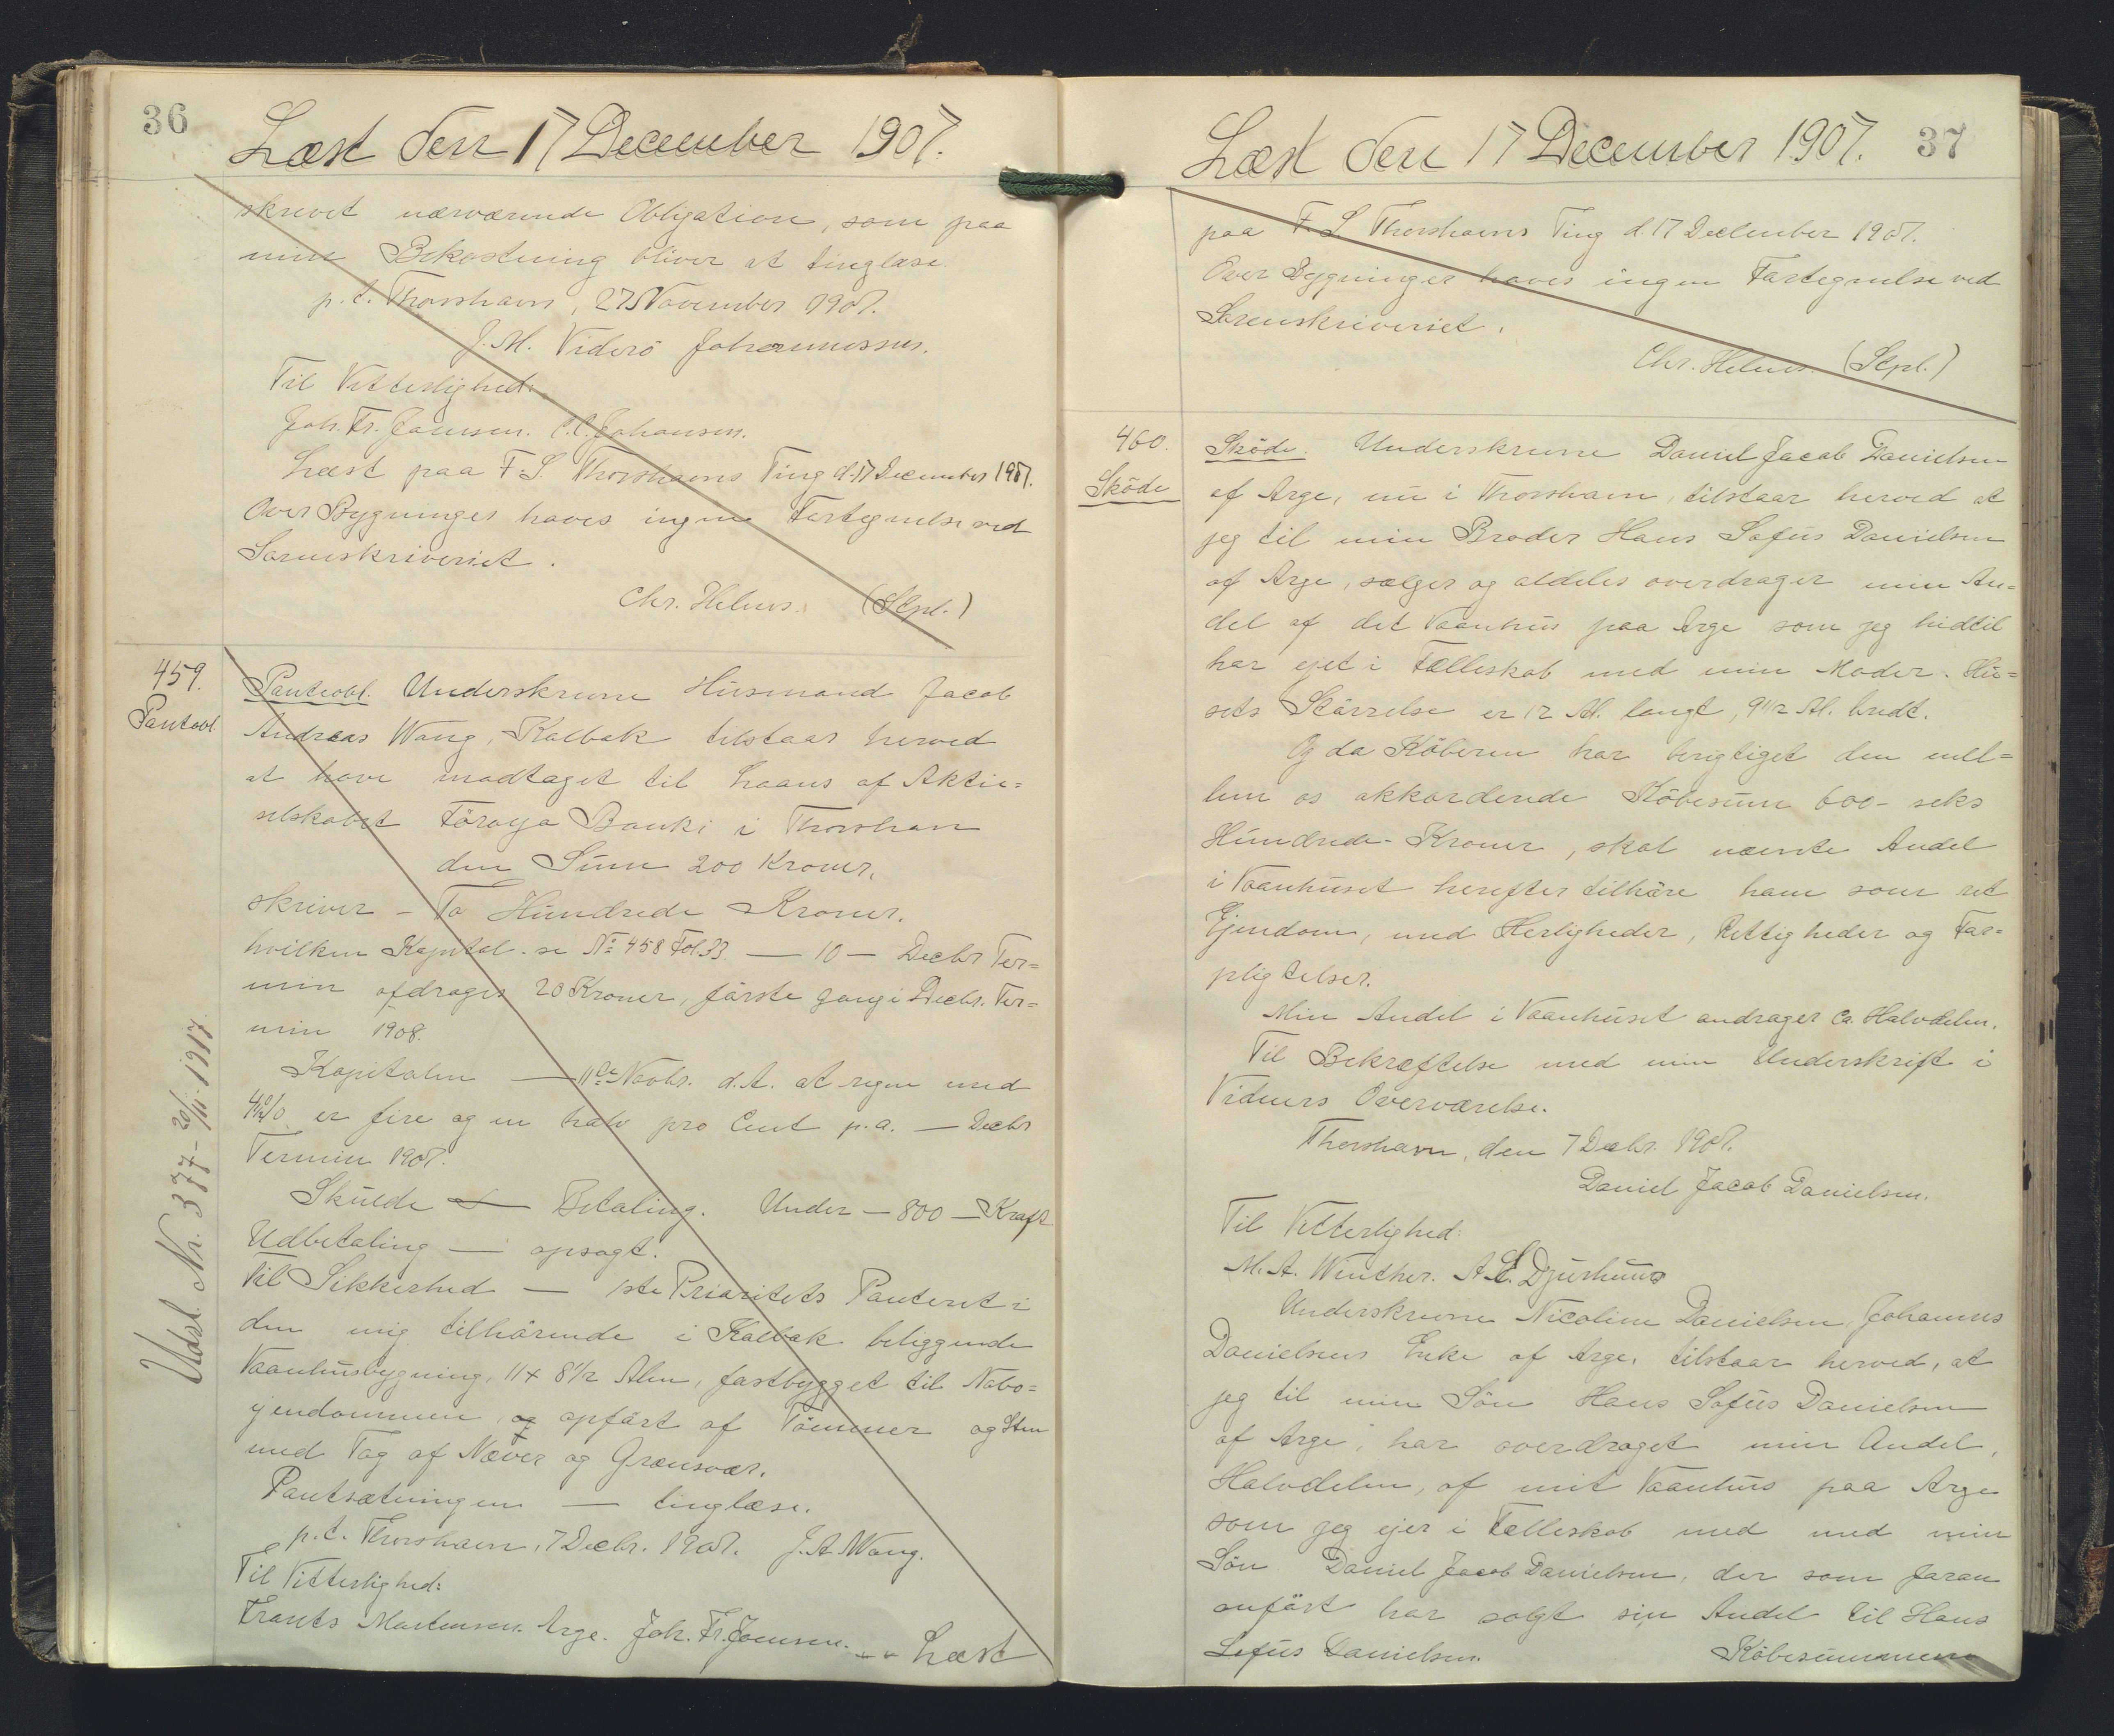 36
Læst den 17 December 1907.
skrevet nærværende Obligation, som paa
min Bekostning bliver at tinglæse.
p.t. Thorshavn, 27 November 1907.
J. M. Viderö Johannessen.
Til Vitterlighed:
Joh. Fr. Joensen. C.C. Johansen.
Læst paa F. S. Thorshavns Ting d. 17 December 1907.
Over Bygninger haves ingen Fortegnelse ved
Sorenskriveriet.
Chr. Helms. (Stpl.)
459.
Pantobl
Panteobl. Underskrevne Husmand Jacob
Andreas Wang, Kalbak tilstaar herved
at have modtaget til Laans af Aktie=
selskabet Föroya Banki i Thorshavn
den Sum 200 Kroner,
skriver – To Hundrede Kroner.
hvilken Kapital. se No 458 Fol. 33. — 10 — Decbr Ter=
min afdrages 20 Kroner, förste gang i Decbr. Ter=
min 1908.
Kapitalen — 11te Novbr. d.A. at regne med
4½% er fire og en halv pro Cent p.a. — Decbr
Termin 1907.
Skulde — Betaling. Under — 800 — Kraft
Udbetaling — opsagt.
Til Sikkerhed — 1ste Prioritets Panteret i
den mig tilhörende i Kalbak beliggende
Vaanhusbygning, 11 x 8½ Alen, fastbygget til Nabo=
ejendommen, og opfört af Tömmer og Sten
med Tag af Næver og Grønsvær.
Pantsætningen — tinglæse.
p.t. Thorshavn, 7 Decbr. 1907. J. A. Wang.
Til Vitterlighed:
Frants Mortensen. Arge. Joh. Fr. Joensen. — Læst
Udsl. Nr. 377 - 20/11 1917.
Læst den 17 December 1907. 37
paa F. S. Thorshavns Ting d. 17 December 1907.
Over Bygninger haves ingen Fortegnelse ved
Sorenskriveriet.
Chr. Helms. (Stpl.)
460.
Sköde
Sköde. Underskrevne Daniel Jacob Danielsen
af Arge, nu i Thorshavn, tilstaar herved at
jeg til min Broder Hans Sofus Danielsen
af Arge, sælger og aldeles overdrager min An=
del af det Vaanhus paa Arge som jeg hidtil
har ejet i Fælleskab med min Moder. Hu=
sets Störrelse er 12 Al. langt, 9½ Al. bredt.
Og da Köberen har berigtiget den mel=
lem os akkorderede Köbesum 600 - seks
Hundrede - Kroner, skal nævnte Andel
i Vaanhuset herefter tilhöre ham som ret
Ejendom, med Herligheder, Rettigheder og For=
pligtelser.
Min Andel i Vaanhuset andrager ca. Halvdelen.
Til Bekræftelse med min Underskrift i
Vidners Overværelse.
Thorshavn, den 7 Decbr. 1907.
Daniel Jacob Danielsen.
Til Vitterlighed:
M. A. Winther. A. C. Djurhuus
Underskrevne Nicoline Danielsen, Johannes
Danielsens Enke af Arge, tilstaar herved, at
jeg til min Sön Hans Sofus Danielsen
af Arge, har overdraget min Andel,
Halvdelen, af mit Vaanhus paa Arge
som jeg ejer i Fælleskab med med min
Sön Daniel Jacob Danielsen, der som foran
anfört har solgt sin Andel til Hans
Sofus Danielsen. Köbesummen